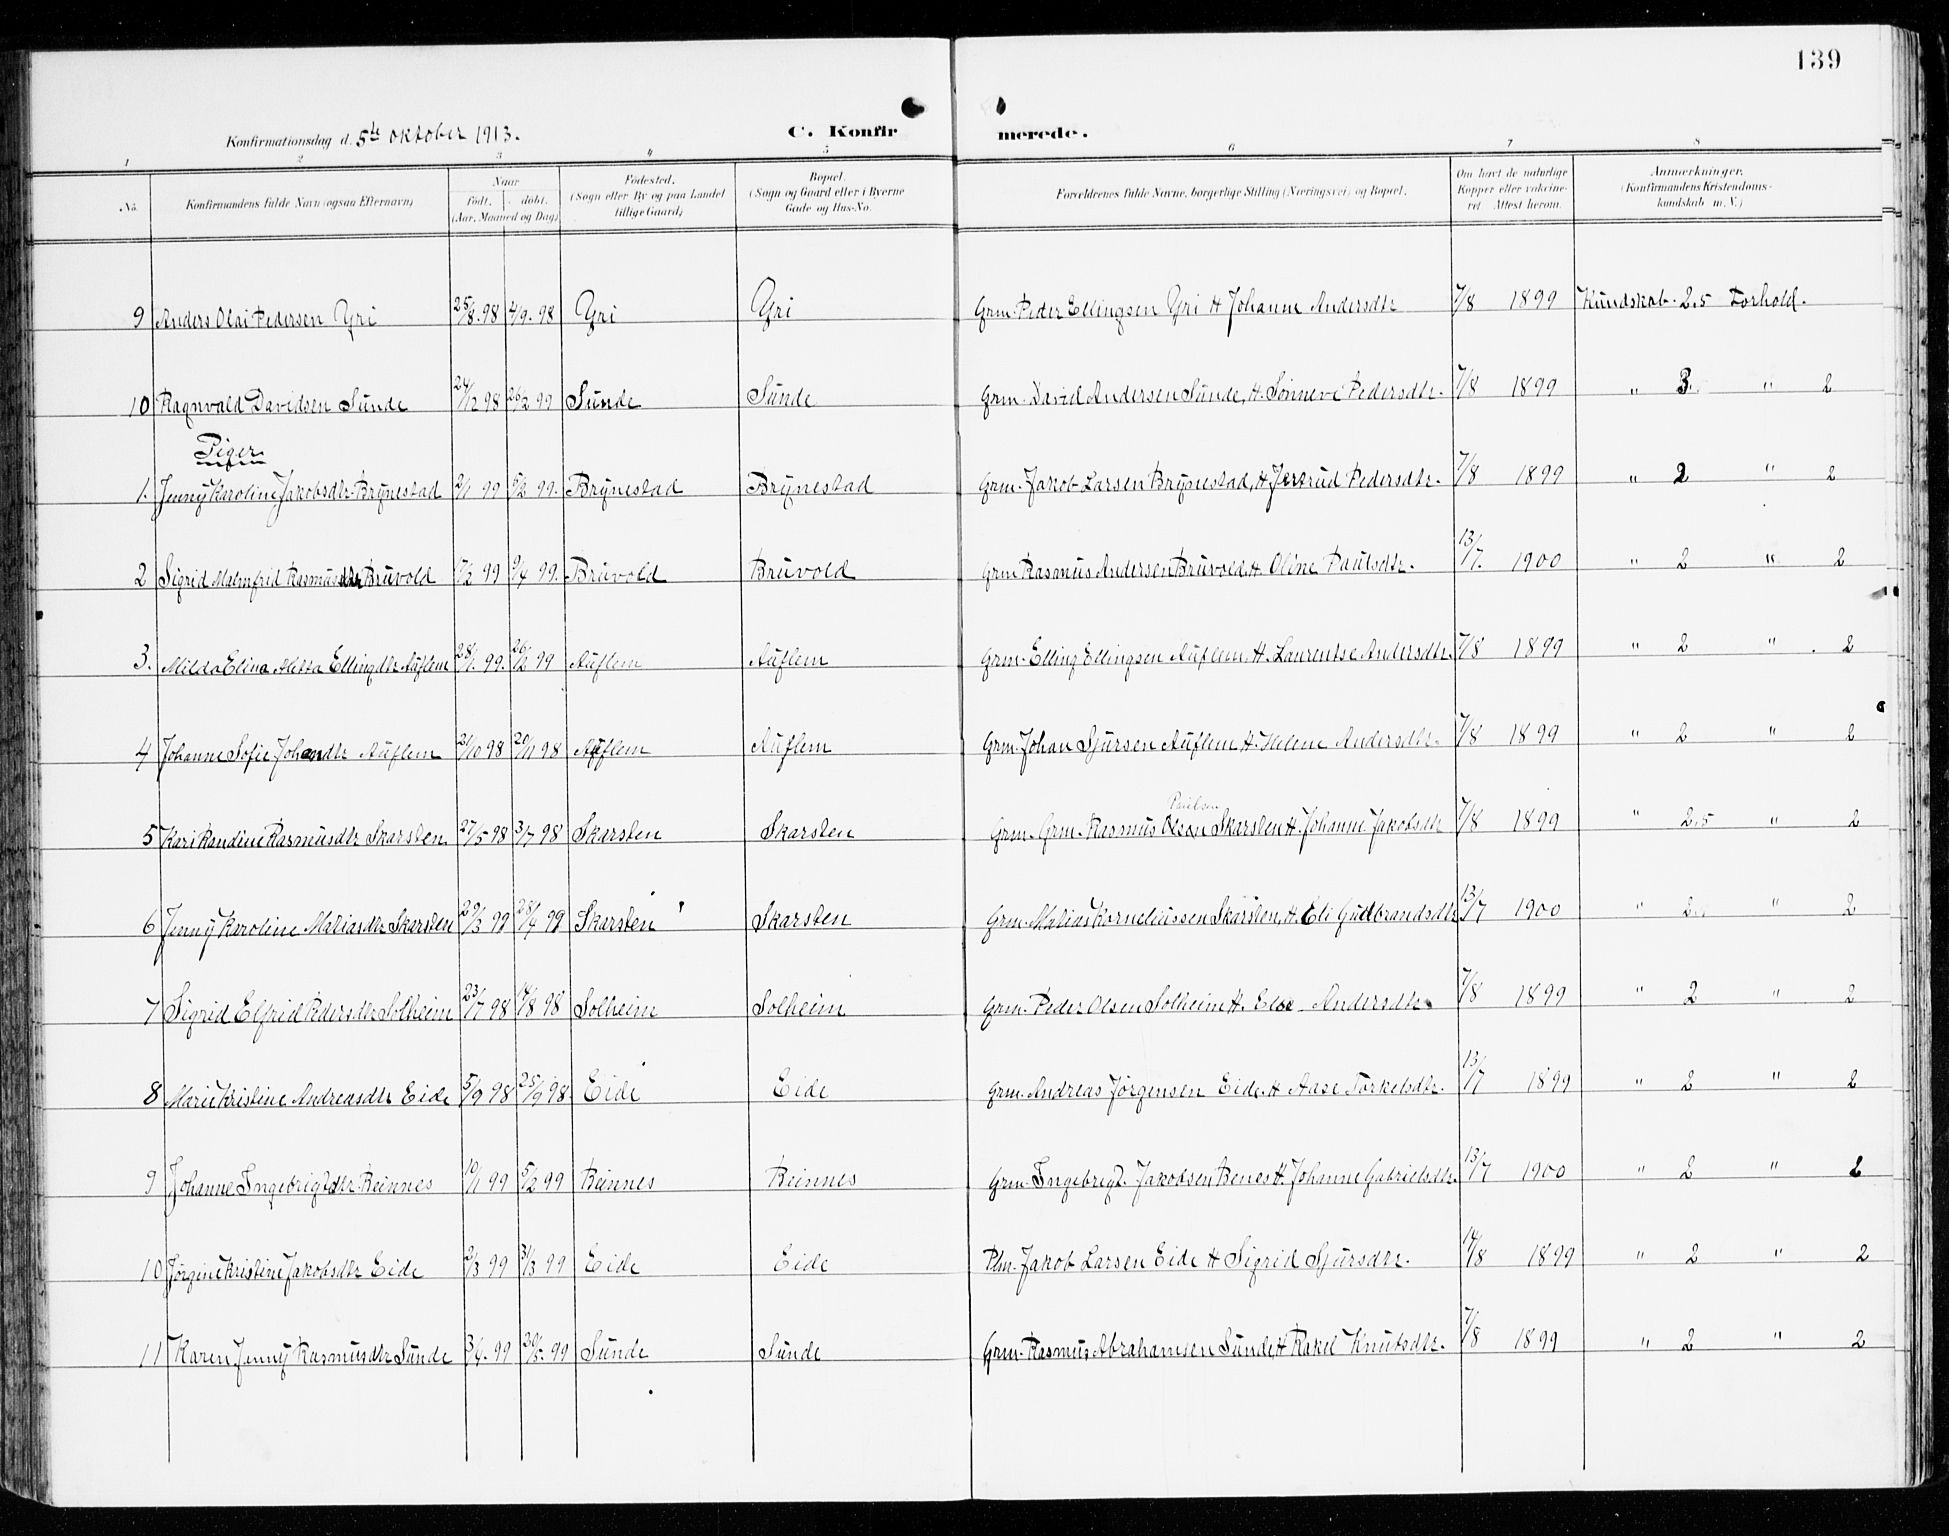 139
Konfirmationsdag d. 5te Oktober 1913. C. Konfir merede.
1 2 3 4 5 6 7 8
No. Konfirmandens fulde Navn (ogsaa Efternavn) Naar født. døbt. (Aar, Maaned og Dag) Fødested. (Sogn eller By og paa Landet tillige Gaard) Bopæl. (Sogn og Gaard eller i Byerne Gade og Hus-No. Forældrenes fulde Navne, borgerlige Stilling (Næringsvei) og Bopæl. Om havt de naturlige Kopper eller vakcineret Attest herom. Anmærkninger. (Konfirmandens Kristendomskundskab m. V.)
9 Anders Olai Pedersen Yri 25/8.98 4/9.98 Yri Yri Grm. Peder Ellingsen Yri H Johanne Andersdtr 7/8 1899 Kundskab. 2,5 Forhold.
10 Ragnvald Davidsen Sunde 24/12 98 26/2 99 Sunde Sunde Grm. David Andersen Sunde, H. Sønneve Pedersdtr. 7/8 1899 " 3 " 2
Piger
1. Jenny Karoline Jakobsdtr. Brynestad 2/1 99 5/2 99. Brynestad Brynestad Grm. Jakob Larsen Brynestad, H Jertrud Pedersdtr. 7/8 1899 " 2 " 2
2 Sigrid Malmfrid Rasmusdtr Bruvold 17/2 99 9/4 99. Bruvold Bruvold Grm Rasmus Andersen Bruvold H. Oline Paulsdtr. 13/7. 1900 " 2 " 2
3. Milda Elina Metta Ellingdtr Auflem 28/1 99. 26/2 99 Auflem Auflem Grm. Elling Ellingsen Auflem, H. Laurentse Andersdtr. 7/8 1899 " 2 " 2
4 Johanne Sofie Johandtr Auflem 31/10 98 20/11 98 Auflem Auflem Grm. Johan Sjursen Auflem H. Helene Andersdtr. 7/8 1899 " 2 " 2
Paulsen
5 Kari Randine Rasmusdtr Skarsten. 27/5 98 3/7 98 Skarsten Skarsten Grm. Grm. Rasmus Olson Skarsten H. Johanne Jakobsdtr 7/8 1899 " 2,5 " 2
6 Jenny Karoline Matiasdtr Skarsten 29/3 99 28/4 99 Skarsten Skarsten Grm. Matias Korneliussen Skarsten, H. Eli Gudbrandsdtr 13/7 1900 " 2 " 2
7 Sigrid Elfrid Pedersdtr Solheim 23/7 98 14/8 98 Solheim Solheim Grm. Peder Olsen Solheim H. Else Andersdtr. 7/8 1899 " 2 " 2
8 Marie Kristine Andreasdtr Eide 5/9 98 25/9 98. Eide Eide Grm. Andreas Jørgensen Eide. H Aase Torkelsdtr. 13/7 1899 " 2 " 2
9 Johanne Ingebrigtdtr Reinnes 10/1 99 5/2 99 Reinnes Reinnes Grm. Ingebrigt. Jakobsen Renes H. Johanne Gabrielsdtr. 13/7 1900 " 2 " 2
10 Jørgine Kristine Jakobsdtr Eide 2/3 99 31/3 99 Eide Eide Plm. Jakob Larsen Eide H Sigrid Sjursdtr. 14/8 1899 " 2 " 2
11 Karen Jenny Rasmusdtr Sunde 3/4.99 30/5.99 Sunde Sunde Grm. Rasmus Abrahamsen Sunde, H Rakel Knutsdtr. 7/8 1899 " 2 " 2